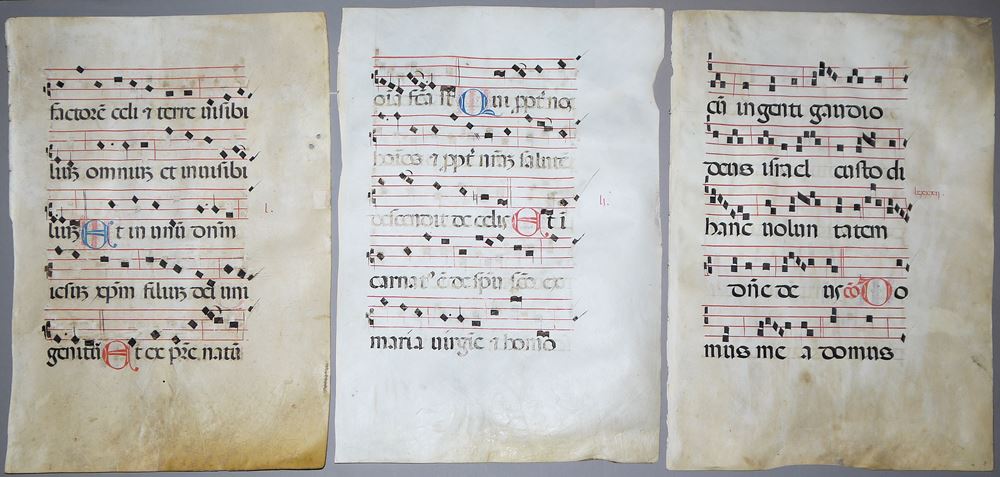 factorē celi ⁊ terre inſibi
liuꝫ omniuꝫ et inuiſibi
liuꝫ Et in unū dnm
ieſuꝫ xp̄m filiuꝫ dei uni
genitū Et ex pr̄e natū
l.
oīa sc̄la Qui ꝓpt̄ nos
hoīes ⁊ ꝓpt̄ nr̄aꝫ ſalute
deſcendit de celis Et ī
carnat' ē de ſp̄u ſc̄o ex
maria uirgīe ⁊ homo
lj.
cū ingenti gaudio
deus iſrael custodi
hanc uolun tatem
dn̄e de us Do
mus me a domus